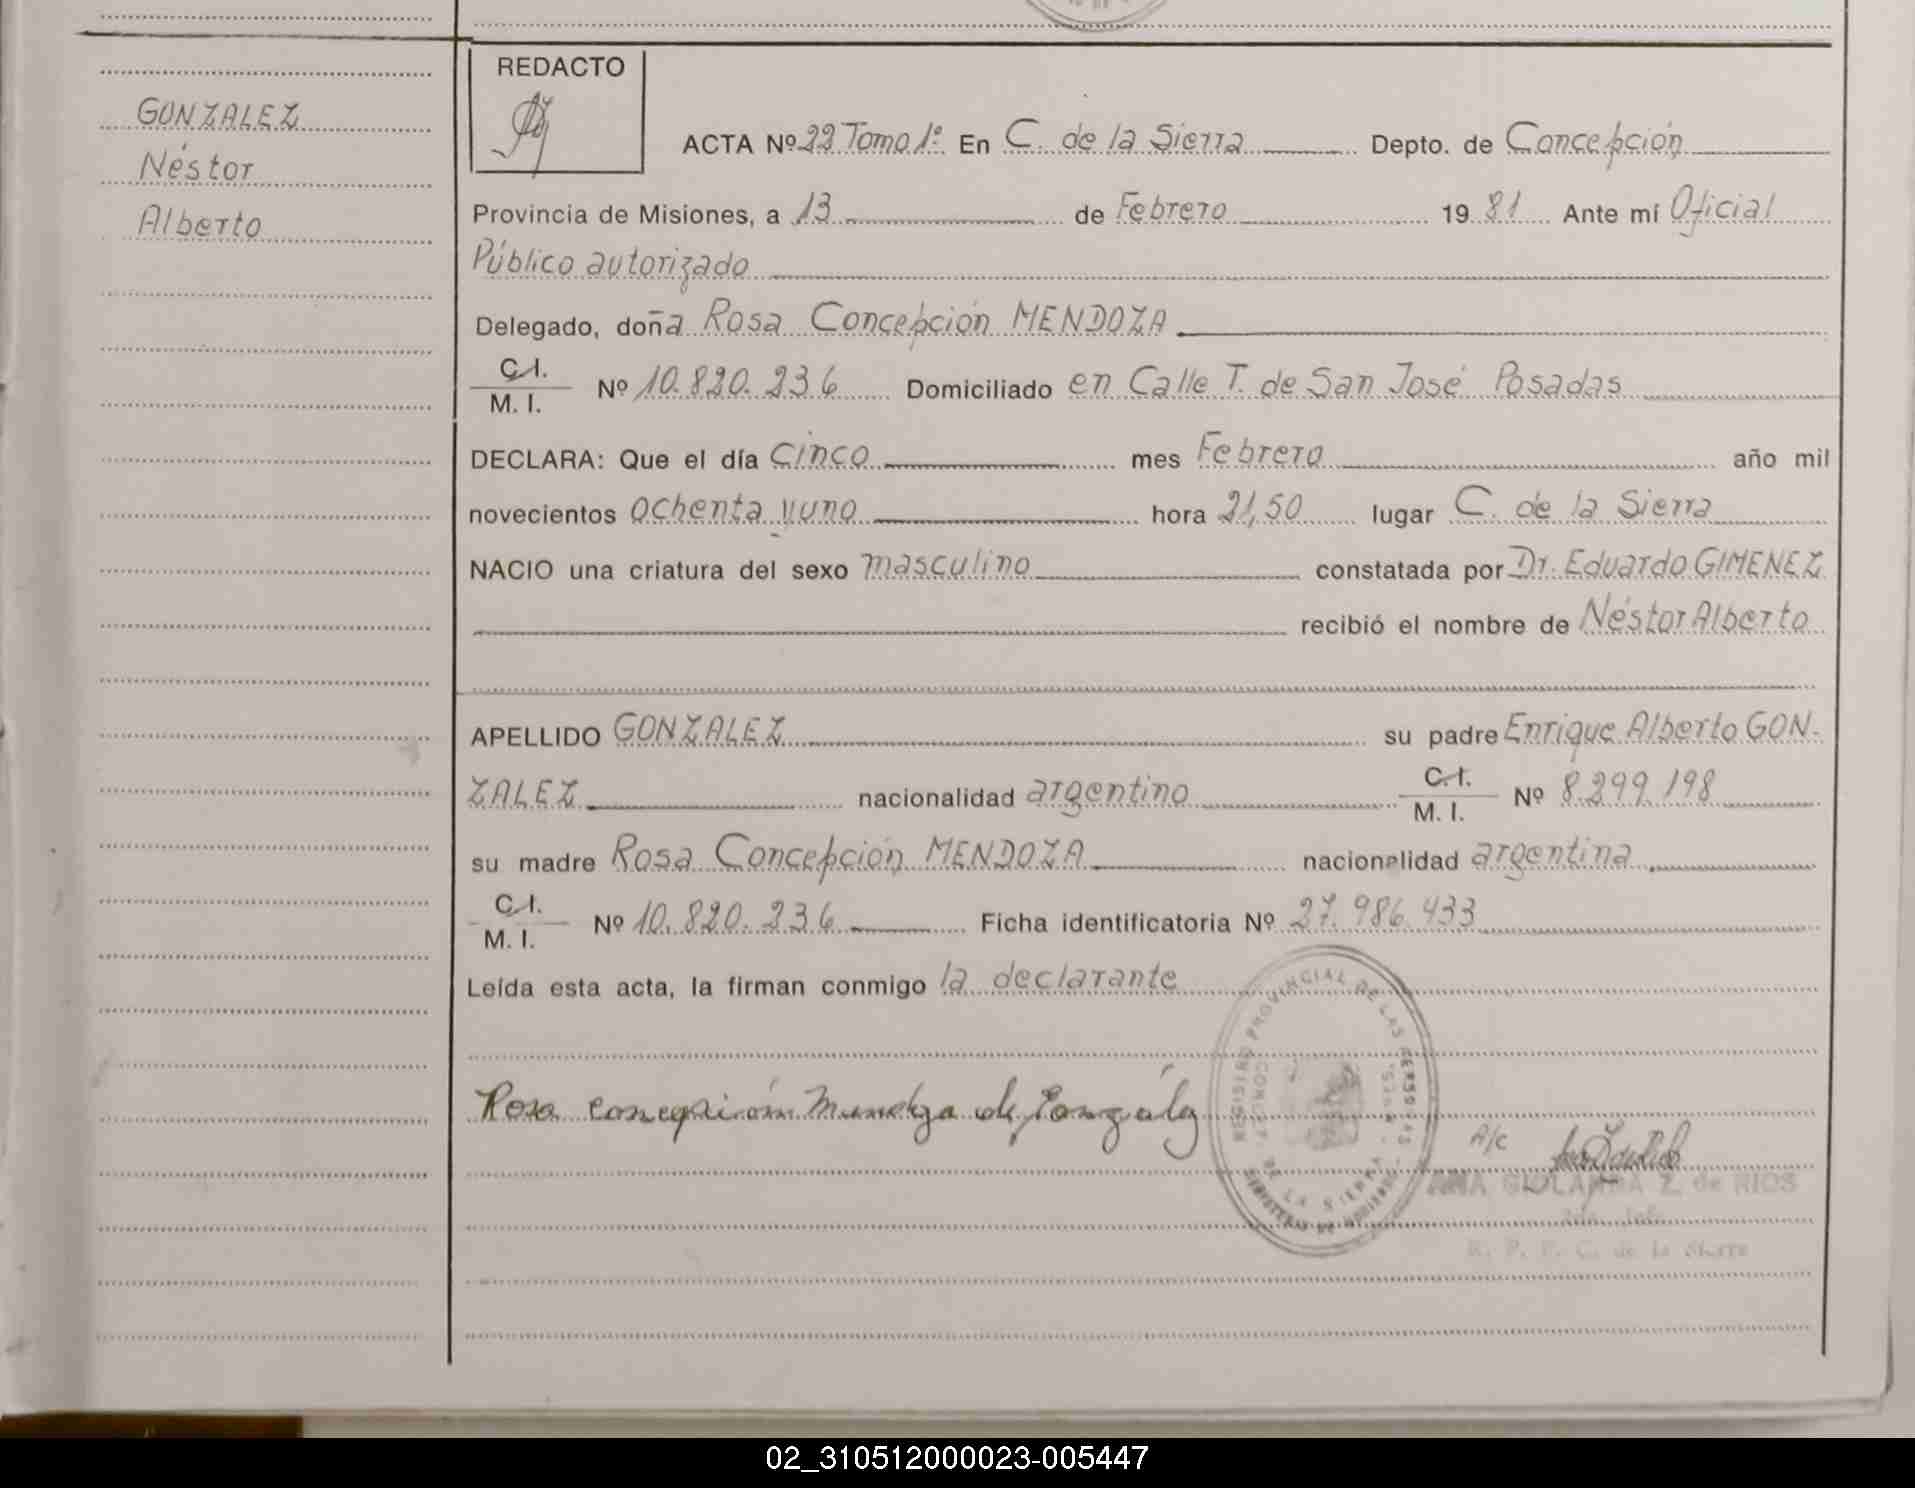 GONZALEZ
Néstor
Alberto
REDACTO
ACTA Nº 22 Tomo 1º En C. de la Sierra Depto. de Concepción
Provincia de Misiones, a 13 de Febrero 19 81 Ante mí Oficial
Público autorizado
Delegado, doña Rosa Concepción MENDOZA
C.I.
M. I. Nº 10.820.236 Domiciliado en Calle T. de San José Posadas
DECLARA: Que el día cinco mes Febrero año mil
novecientos ochenta y uno hora 21,50 lugar C. de la Sierra
NACIO una criatura del sexo masculino constatada por Dr. Eduardo GIMENEZ
recibió el nombre de Néstor Alberto
APELLIDO GONZALEZ su padre Enrique Alberto GON-
ZALEZ nacionalidad argentino C.I.
M. I. Nº 8.299.198
su madre Rosa Concepción MENDOZA nacionalidad argentina
C.I.
M. I. Nº 10.820.236 Ficha identificatoria Nº 27.986.433
Leída esta acta, la firman conmigo la declarante
Rosa concepción Mendoza de Gonzálz
REGISTRO PROVINCIAL DE LAS PERSONAS
DE LA SIERRA
MINISTERIO DE GOBIERNO
A/c
ANA Z. de RIOS
R. P. P. C. de la Sierra
02_310512000023-005447